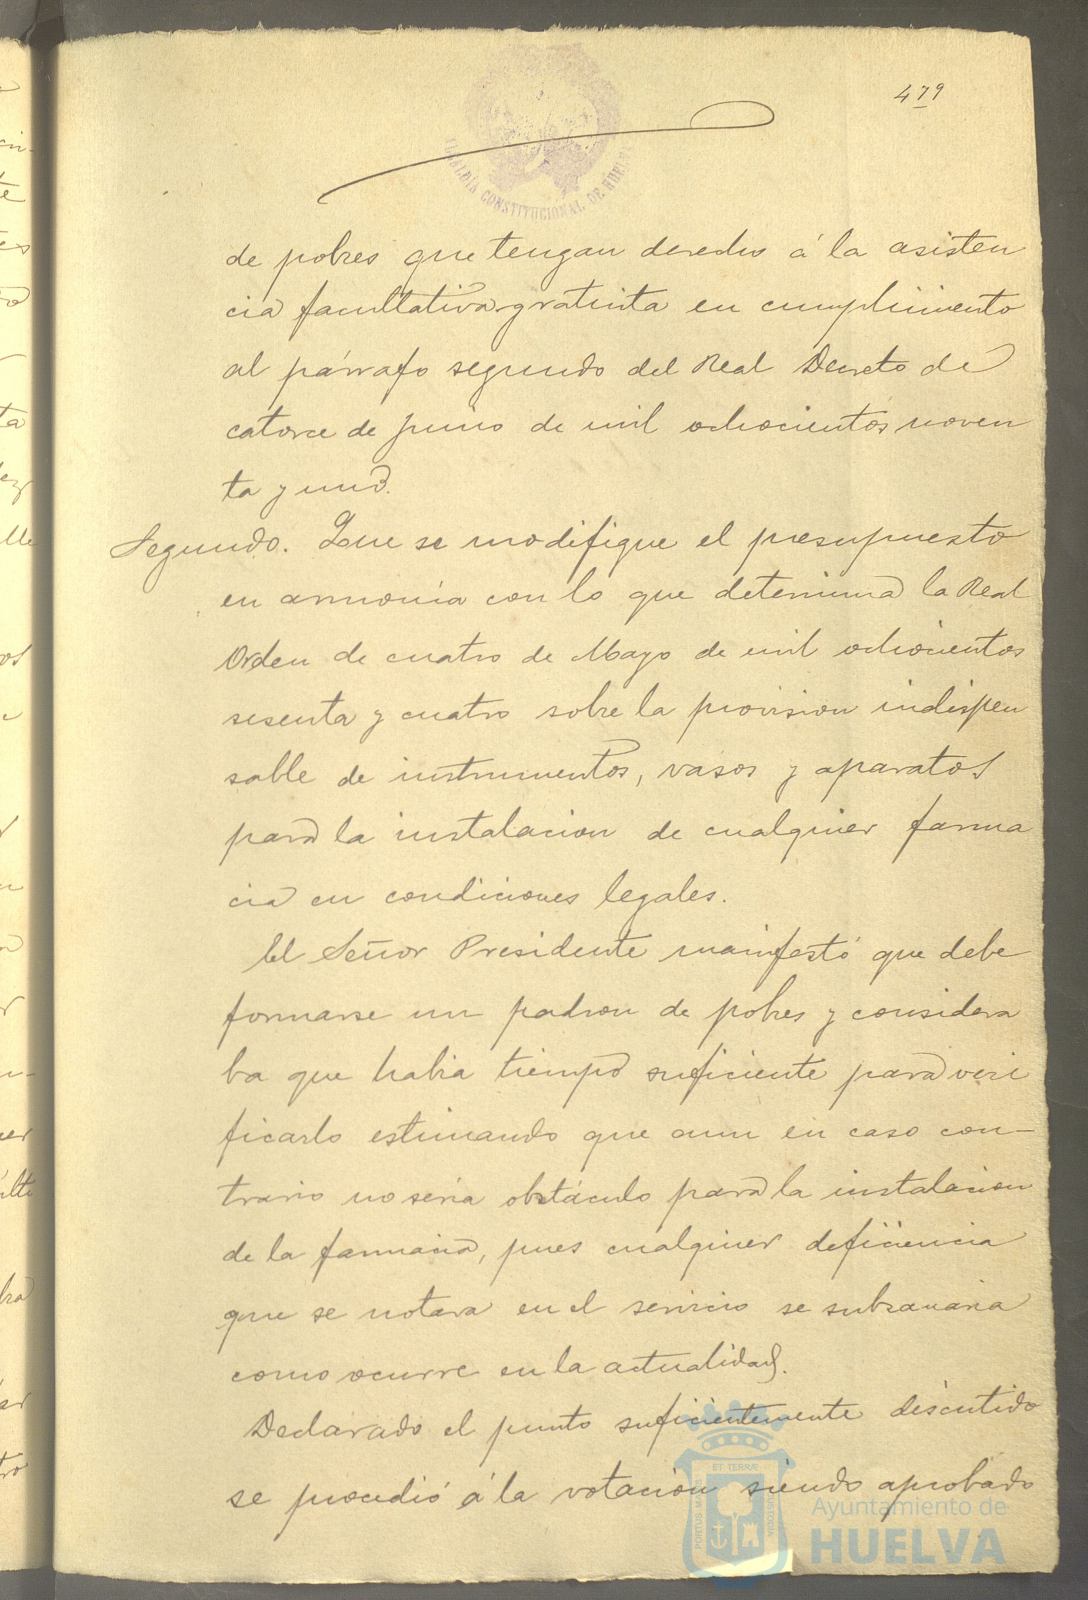 479
ALCALDÍA CONSTITUCIONAL DE HUELVA
de pobres que tengan derecho á la asisten
cia facultativa gratuita en cumplimiento
al párrafo segundo del Real Decreto de
catorce de Junio de mil ochocientos noven
ta y uno.
Segundo. Que se modifique el presupuesto
en armonía con lo que determina la Real
Orden de cuatro de Mayo de mil ochocientos
sesenta y cuatro sobre la provision indispen
sable de instrumentos, vasos y aparatos
para la instalacion de cualquier farma
cia en condiciones legales.
El Señor Presidente manifestó que debe
formarse un padron de pobres y considera
ba que habia tiempo suficiente para veri
ficarlo estimando que aun en caso con-
trario no seria obstáculo para la instalacion
de la farmacia, pues cualquier deficiencia
que se notara en el servicio se subsanaria
como ocurre en la actualidad.
Declarado el punto suficientemente discutido
se procedió á la votacion siendo aprobado
PORTUS MARIS ET TERRÆ CUSTODIA
Ayuntamiento de
HUELVA